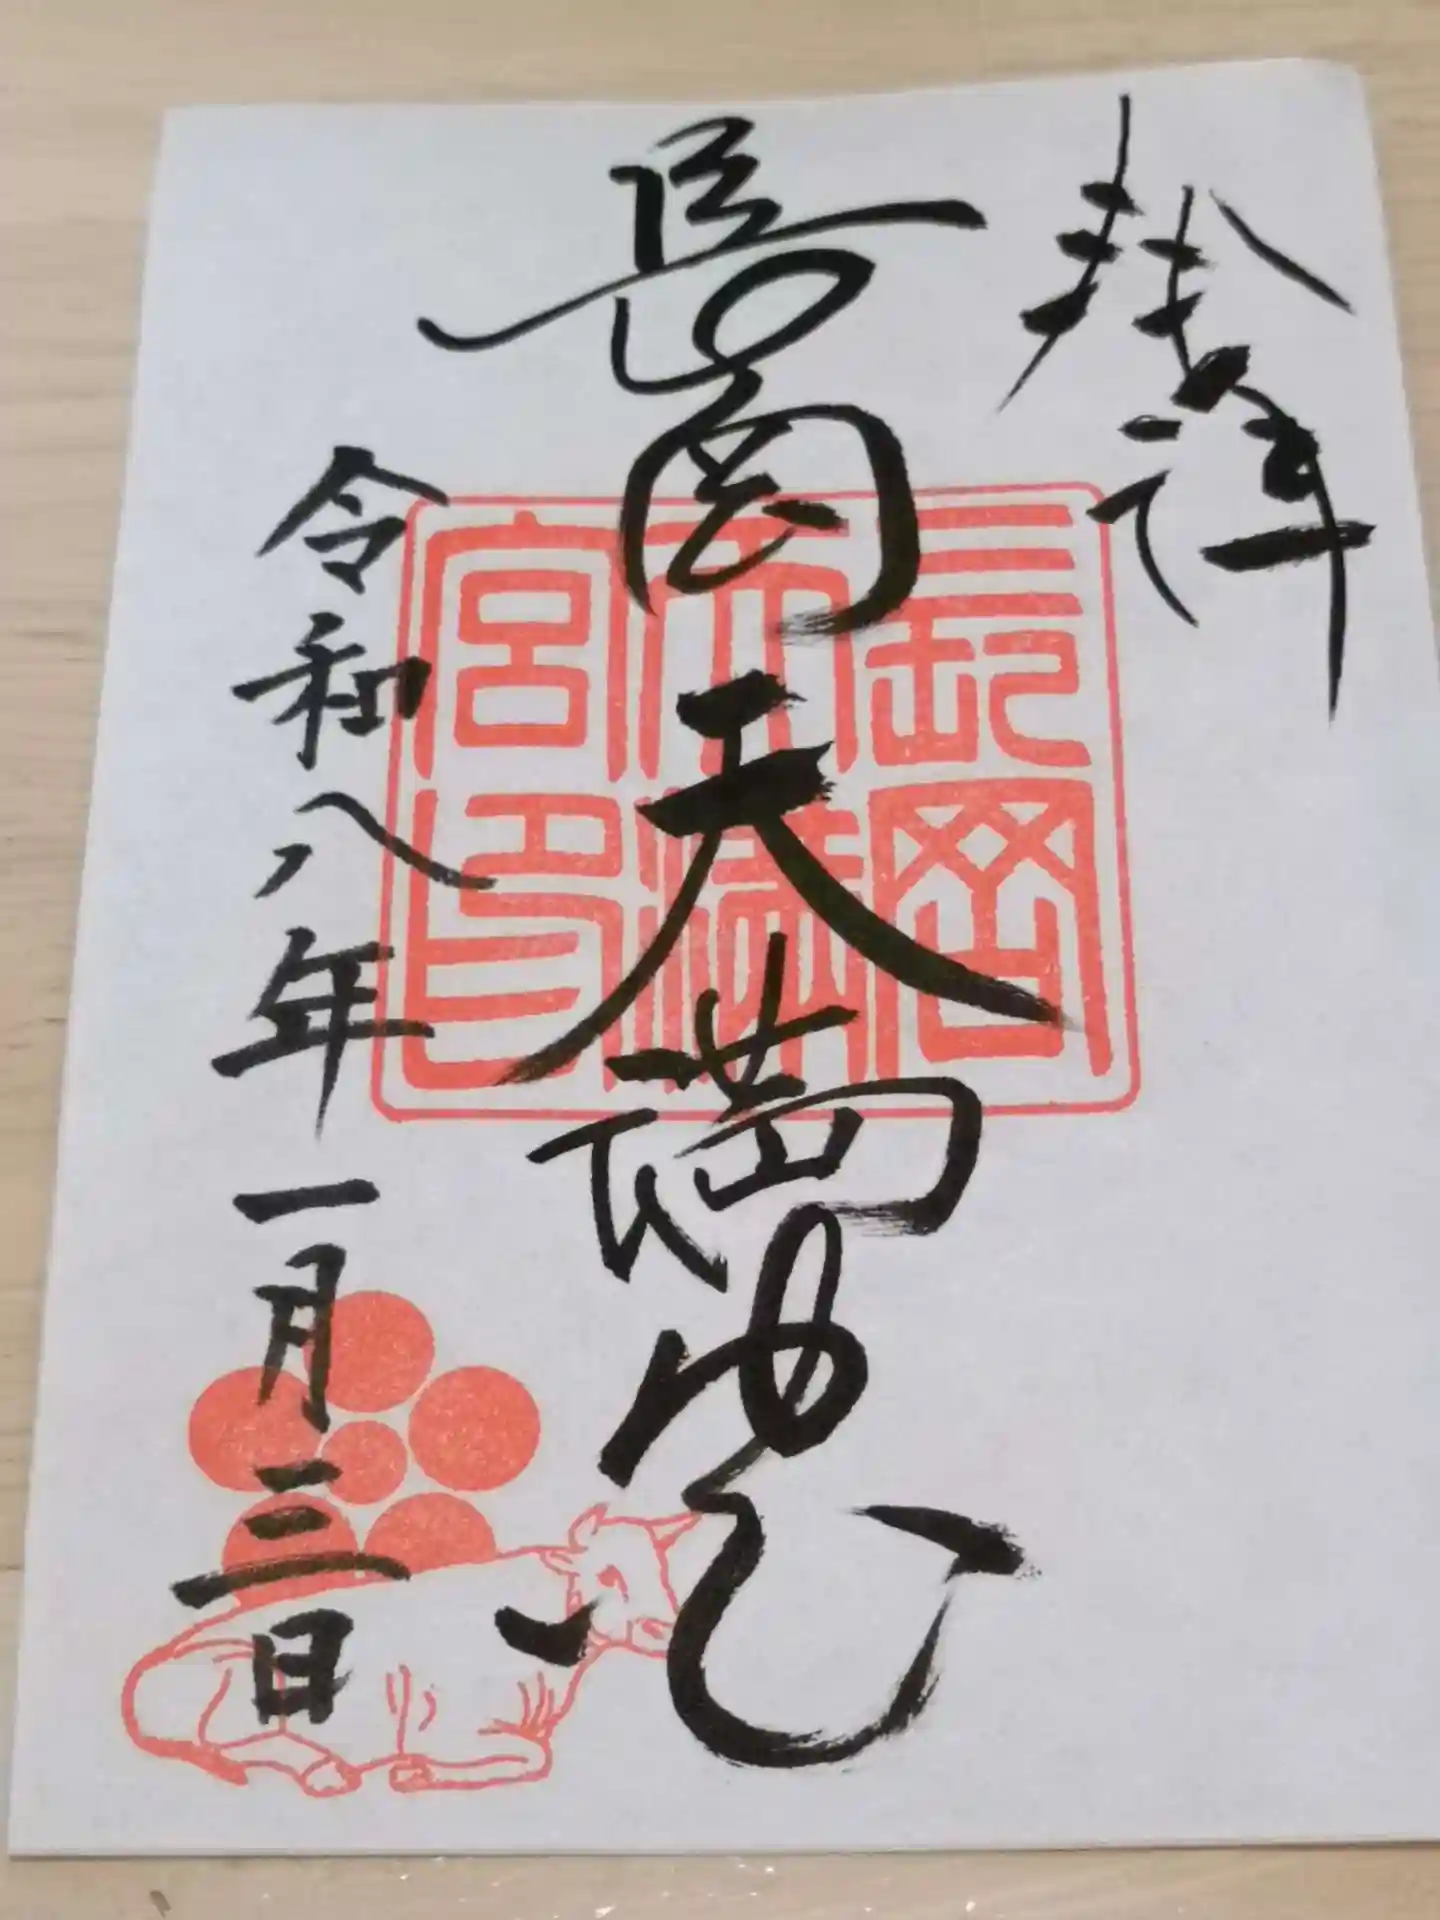 奉拝
長岡天満宮
長岡
天満
宮印
令和八年一月三日